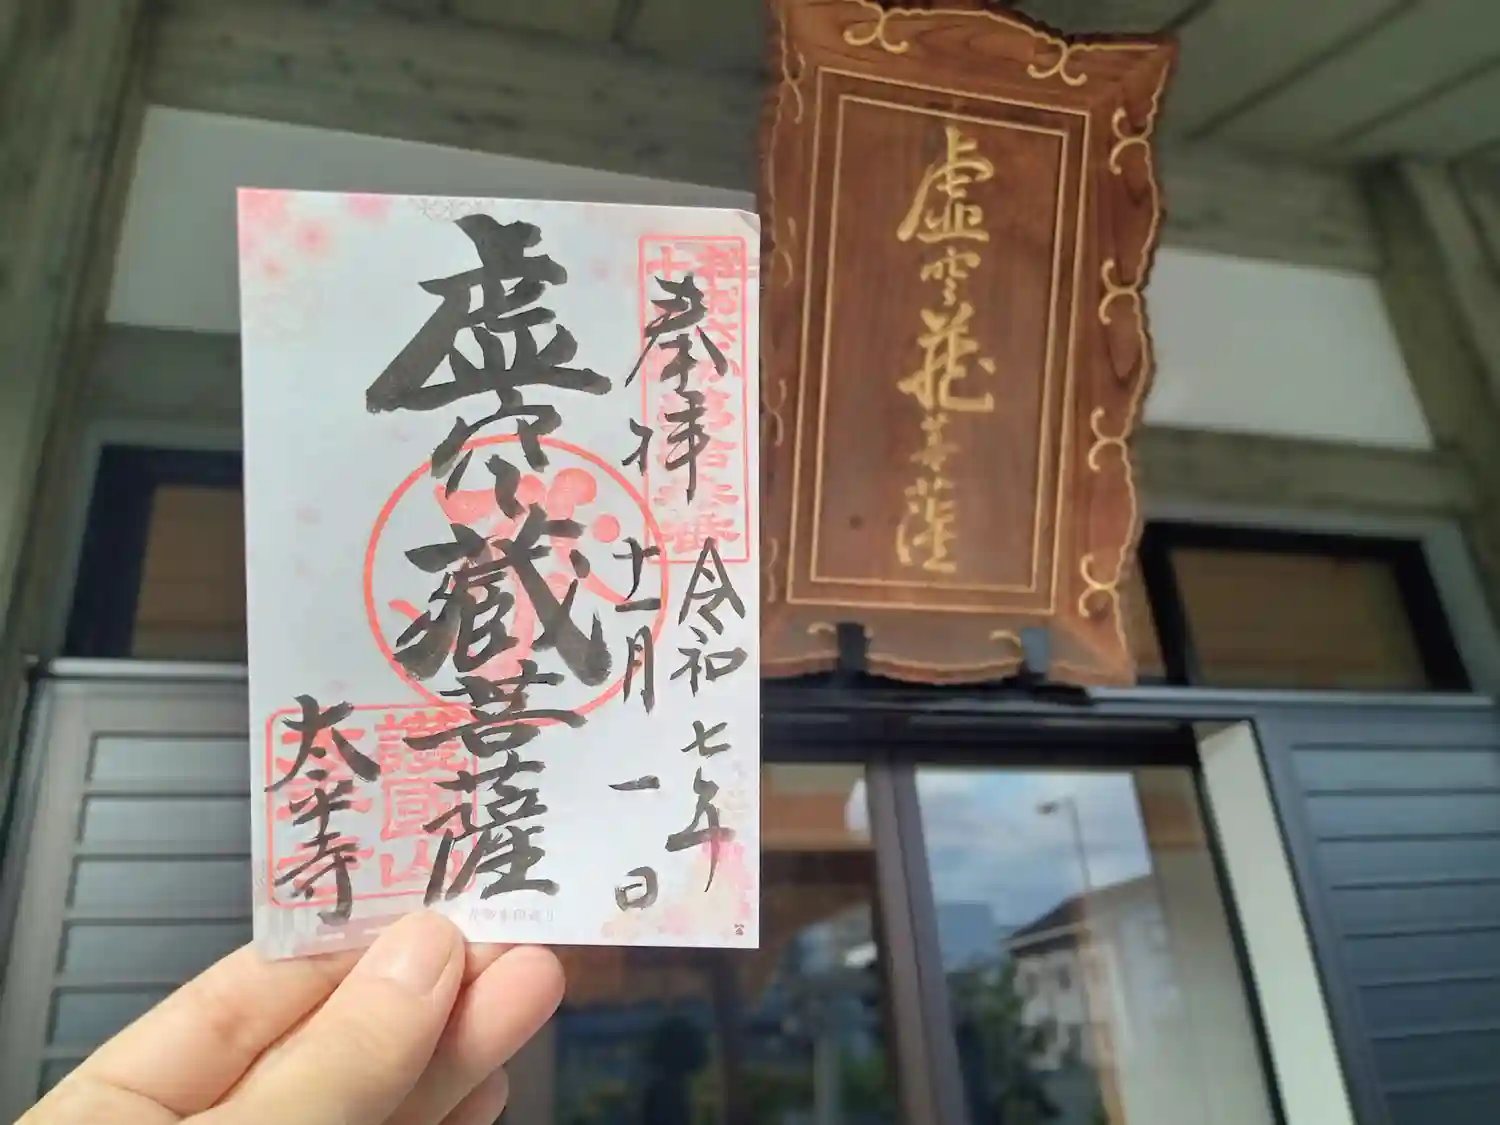 奉拝
令和七年
十一月一日
虚空蔵菩薩
太平寺
護國山
太平寺
虚空蔵菩薩